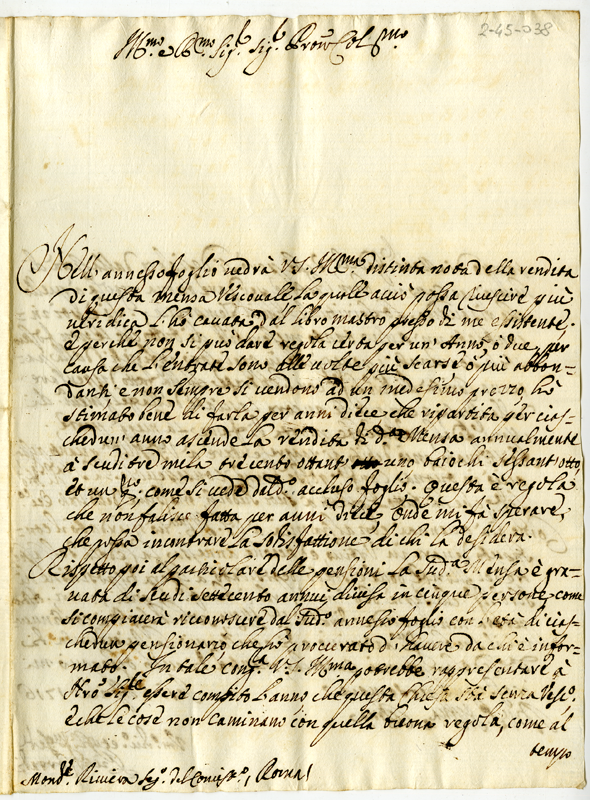 2-45-038
Ill.mo e R.mo Sig.r Sig.r Pron Col.mo
Nell annesso foglio vedrà V.S. Ill.ma distinta nota della rendita
di questa Mensa Vescovale la quale acciò possa riuscire più
veridica l'hò cavata dal libro mastro presso di me esistente.
e perche non si può dare regola certa per un' Anno, ò due, per
causa che l'entrate sono alle volte più scarse ò più abbon=
danti e non sempre si vendono ad un medesimo prezzo hò
stimato bene di farla per anni diece che ripartita per cias=
chedun' anno ascende la rendita di d.a Mensa annualmente
à scudi tre mila trecento ottant' uno baiochi sessant' otto,
et un come si vede dal d.o accluso foglio. Questa è regola
che non falisce fatta per anni dieci, onde mi fà sperare,
che possa incontrare la sodisfattione di chi la desidera.
Rispetto poi al particolare delle pensioni la sud.a Mensa è gra=
vata di scudi settecento annui divisa in cinque persone come
si compiacerà riconoscere dal sud.o annesso foglio con l'età di cias=
chedun pensionario che hò procurato d'havere da chi è infor=
mato. In tale cong.a V.S. Ill.ma potrebbe rappresentare à
essere compito l'anno che questa Chiesa stà senza Vesc.o
e che le cose non caminano con quella buona regola, come al
tempo
Mons.r Riviera Seg.o del Concist.o, Roma